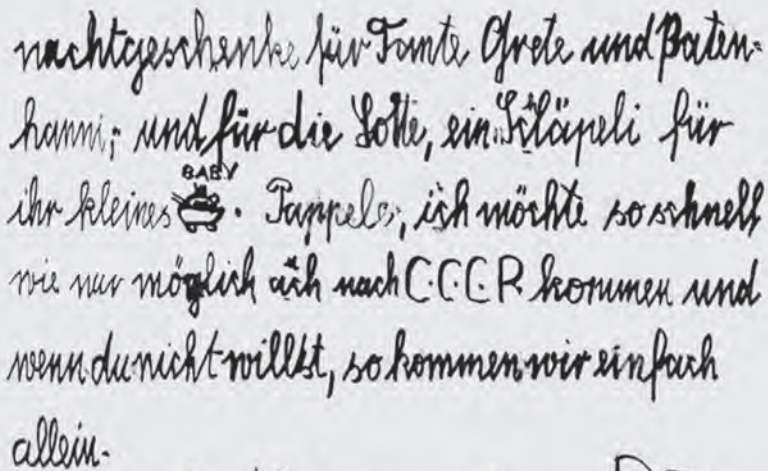 nachtgeschenke für Tante Grete und Paten-
hanni; und für die Lotte, ein Schläpeli für
BABY
ihr kleines . Pappele, ich möchte so schnell
wie nur möglich nach C.C.C.P. kommen und
wenn du nicht willst, so kommen wir einfach
allein.